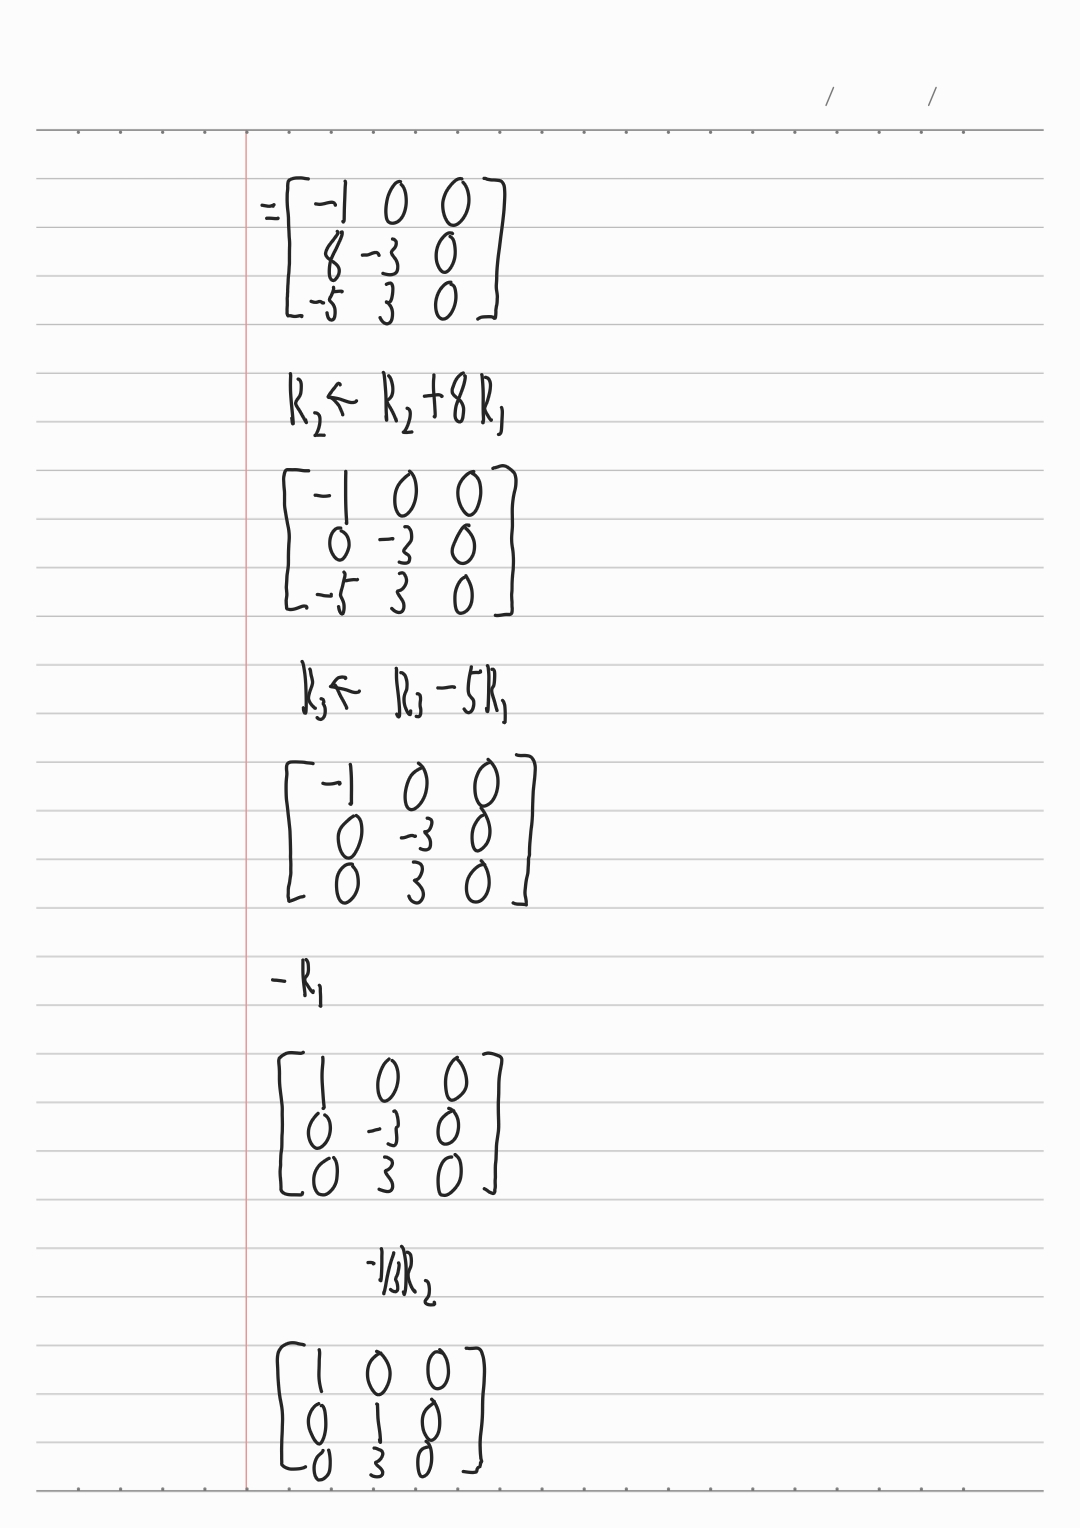 / /
= [ -1 0 0 ]
8 -3 0
-5 3 0
R₂ ← R₂ + 8R₁
[ -1 0 0 ]
0 -3 0
-5 3 0
R₃ ← R₃ - 5R₁
[ -1 0 0 ]
0 -3 0
0 3 0
- R₁
[ 1 0 0 ]
0 -3 0
0 3 0
-1/3R₂
[ 1 0 0 ]
0 1 0
0 3 0